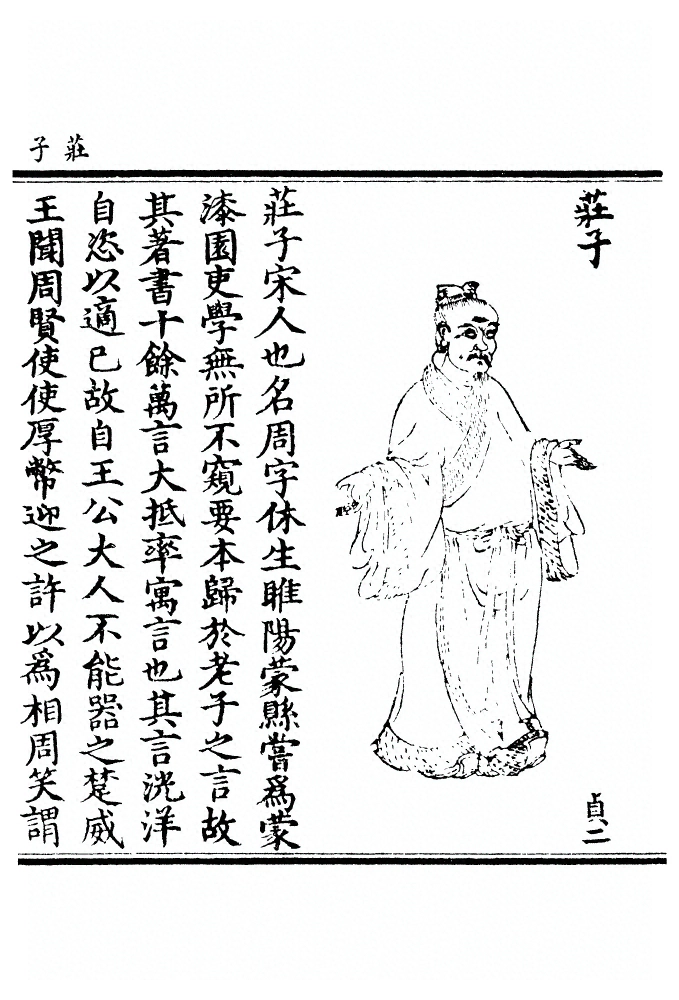 莊子
莊子
貞二
莊子宋人也名周字休生睢陽蒙縣嘗爲蒙
漆園吏學無所不窺要本歸於老子之言故
其著書十餘萬言大抵率寓言也其言洸洋
自恣以適已故自王公大人不能器之楚威
王聞周賢使使厚幣迎之許以爲相周笑謂